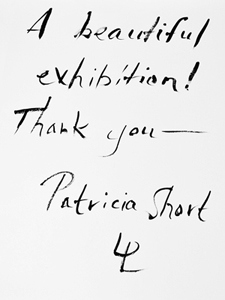 A beautiful
exhibition!
Thank you—
Patricia Short